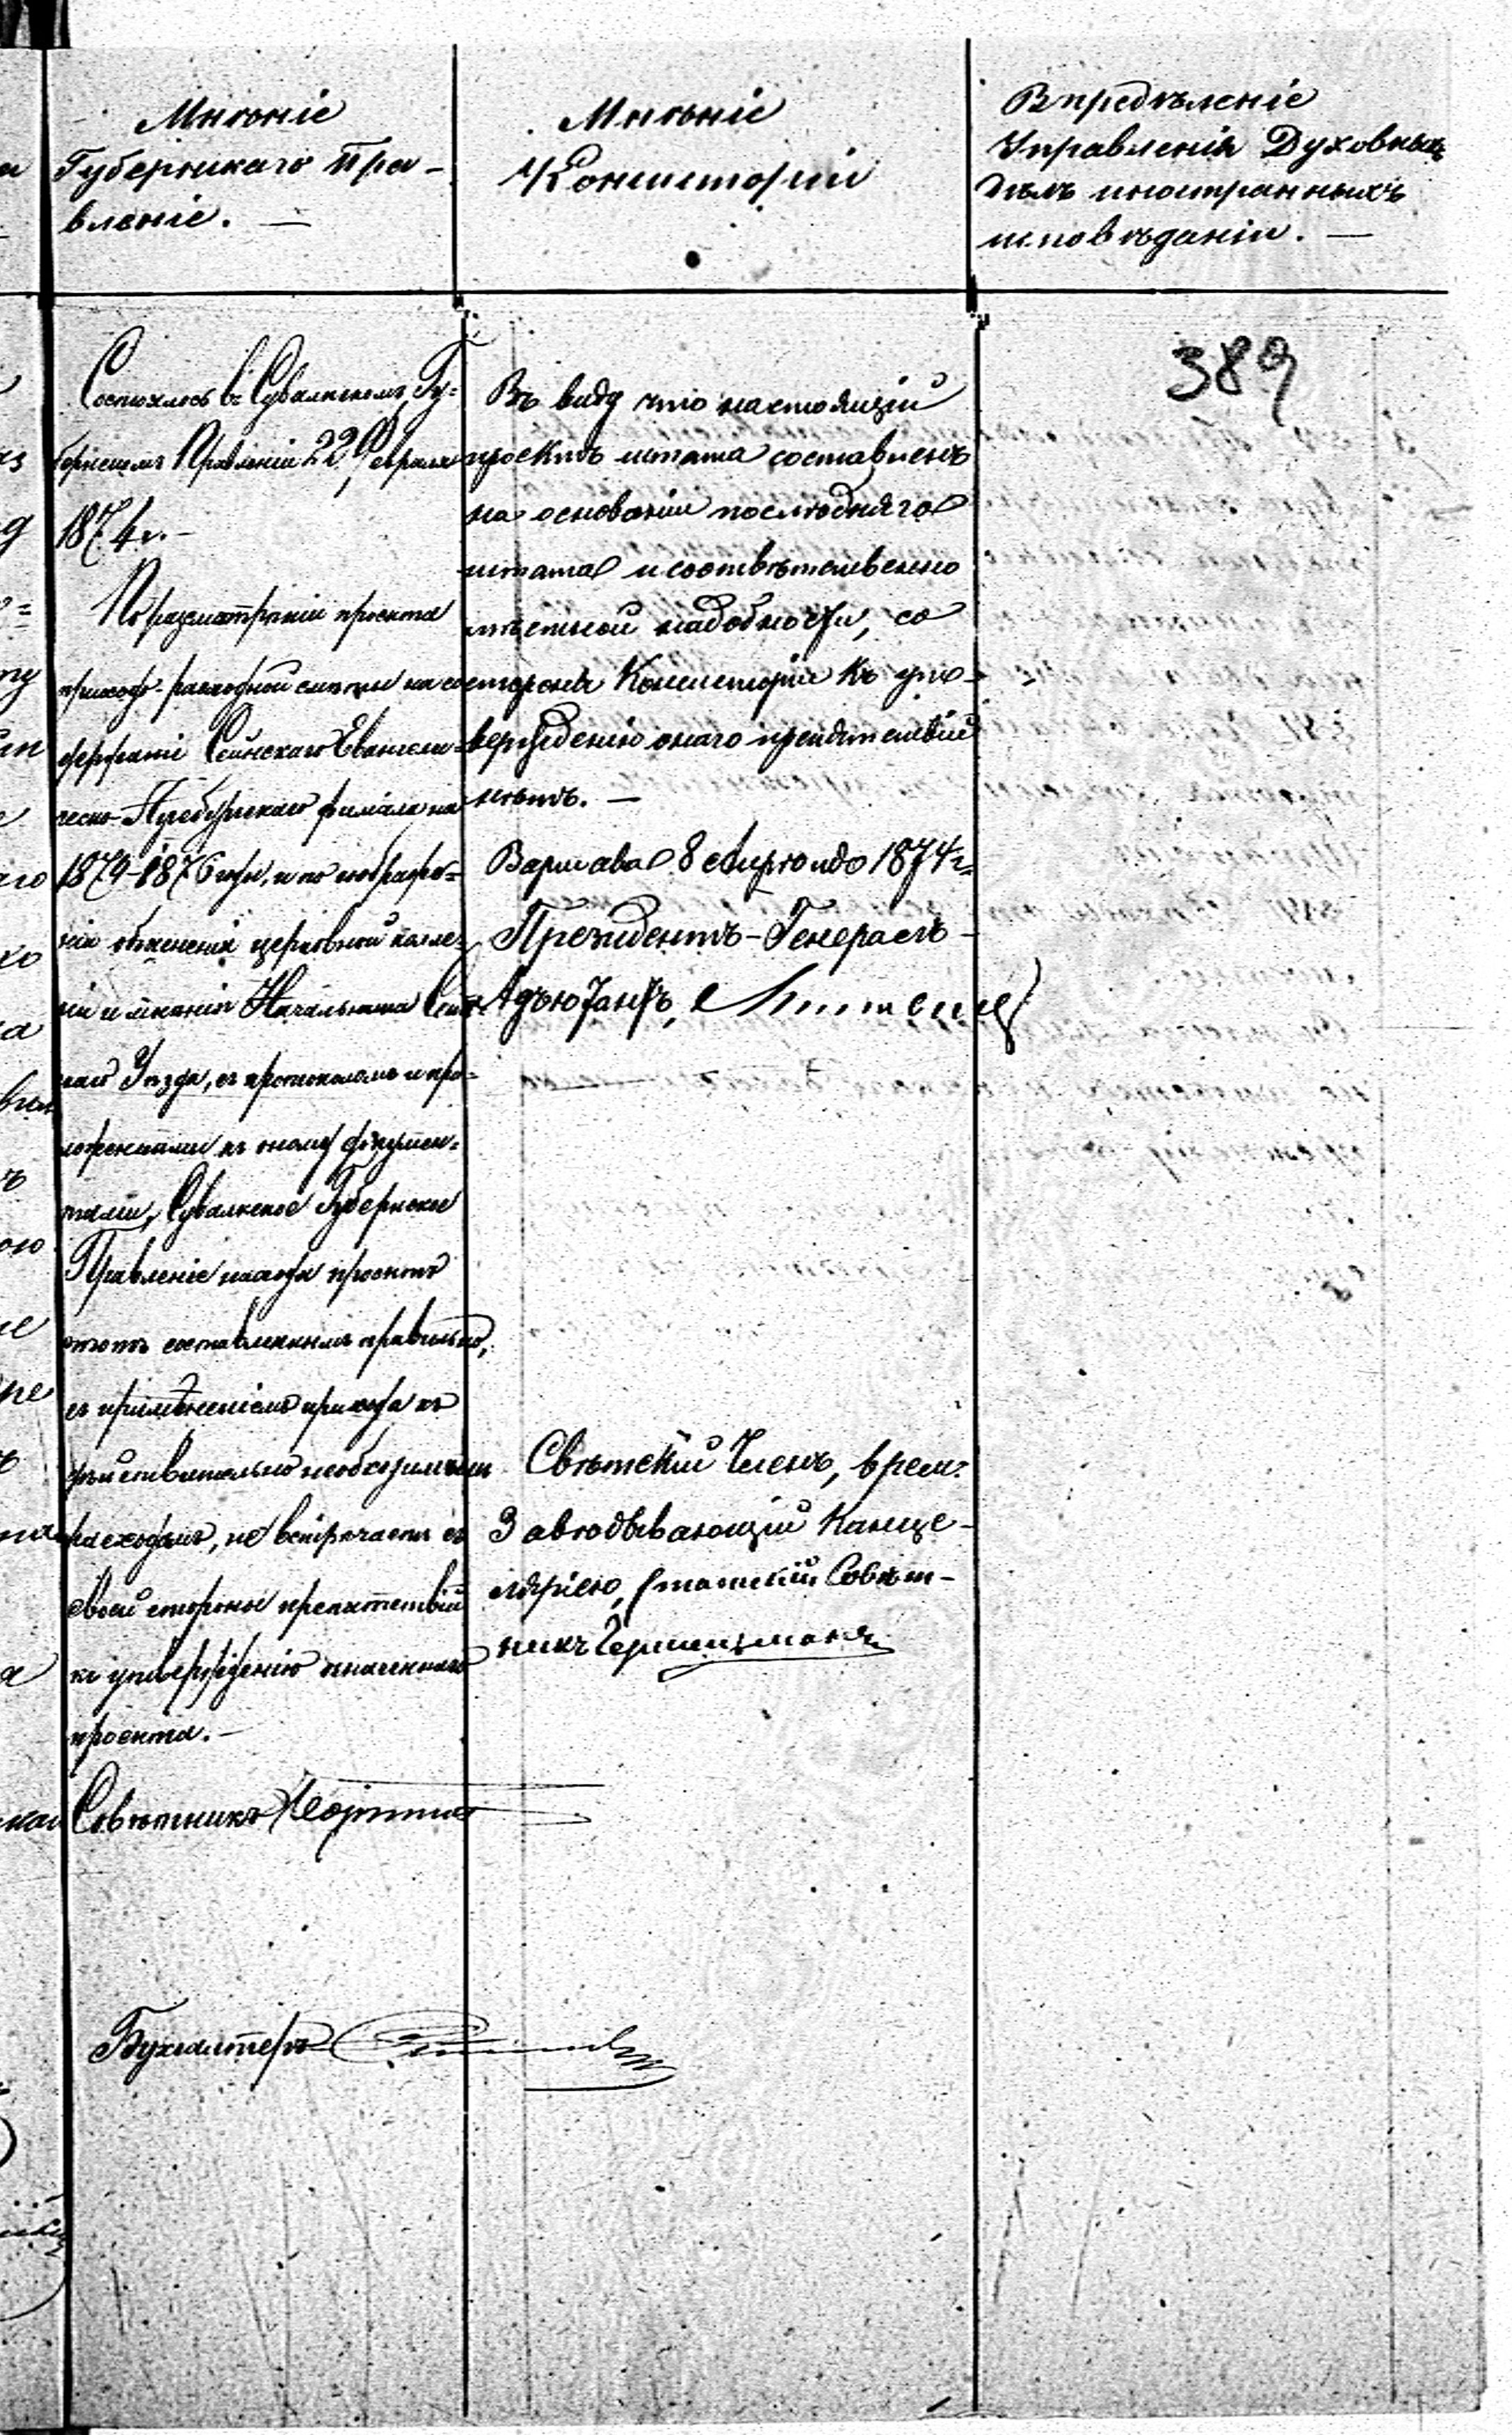 Мнѣніе
Губернскаго Пра-
вленіе. —
Мнѣніе
Консисторіи
Впредѣленіе
Управленія Духовныхъ
дѣлъ иностранныхъ
исповѣданіи. —
389
Состоялось въ Сувалкскомъ Гу-
бернскомъ Правленіи 22 Февраля
1874 г. -
По разсмотрѣніи проекта
приходо-расходной смѣты на со
держаніе Сейнскаго Евангели-
ческо-Аугсбургскаго филіала на
1874-1876 годы, и по соображе-
ніи объясненія церковной колле-
гіи и мнѣнія Начальника Сейн
скаго Уѣзда, съ протоколомъ и при-
ложенными къ оному докумен-
тами, Сувалкское Губернское
Правленіе находя проектъ
этотъ составленнымъ правильно,
съ примѣненіемъ прихода къ
дѣйствительно необходимымъ
расходамъ, не встрѣчаетъ съ
своей стороны препятствій
къ утвержденію означеннаго
проекта. -
Совѣтникъ
Бухгалтеръ
Въ виду что настоящій
проектъ штата составленъ
на основаніи послѣдняго
штата и соотвѣтственно
мѣстной надобности, со
стороны Консисторіи къ утв-
вержденію онаго препятствій
нѣтъ. —
Варшава 8 Апрѣля 1874 г.
Президентъ-Генералъ-
Адъютантъ,
Свѣтскій Членъ, врем.
Завѣдывающій Канце-
ляріею, Статскій Совѣт-
никъ